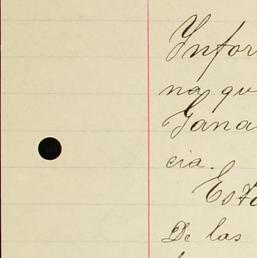 Infor
na qu
Gana
cia.
Esta
De las